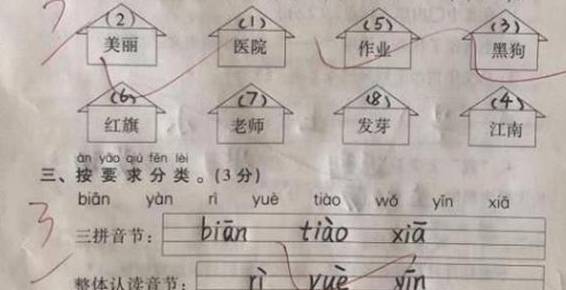 (2) (1) (5) (3)
美丽 医院 作业 黑狗
(6) (7) (8) (4)
红旗 老师 发芽 江南
àn yāo qiú fēn lèi
三、按要求分类。(3分)
biān yàn rì yuè tiào wǒ yīn xiā
3
三拼音节: biān tiào xiā
整体认读音节: rì yuè yīn